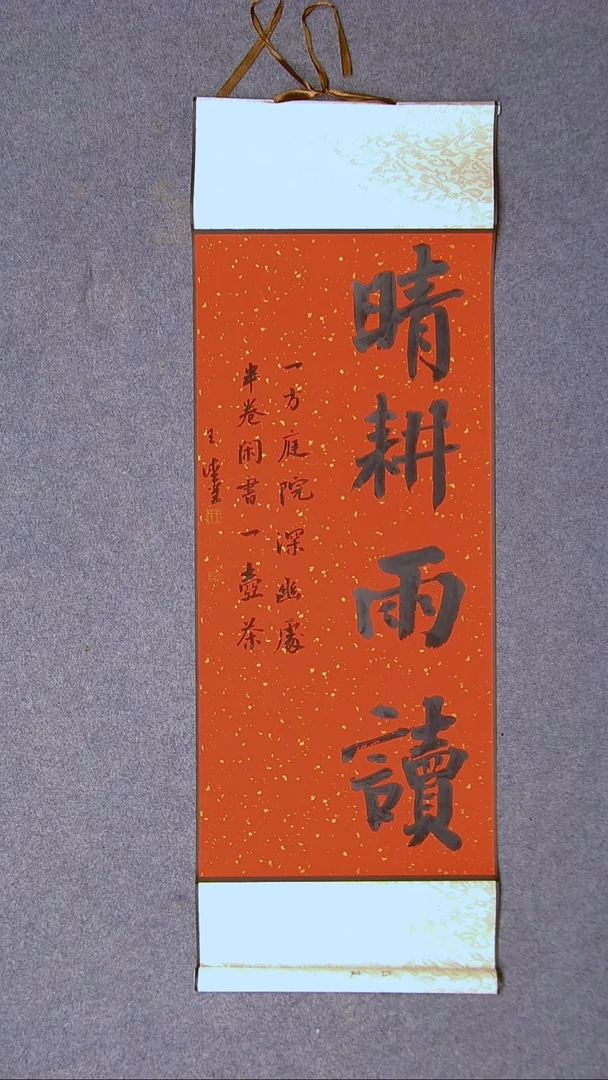 晴耕雨讀
一方庭院深幽處
半卷闲書一壺茶